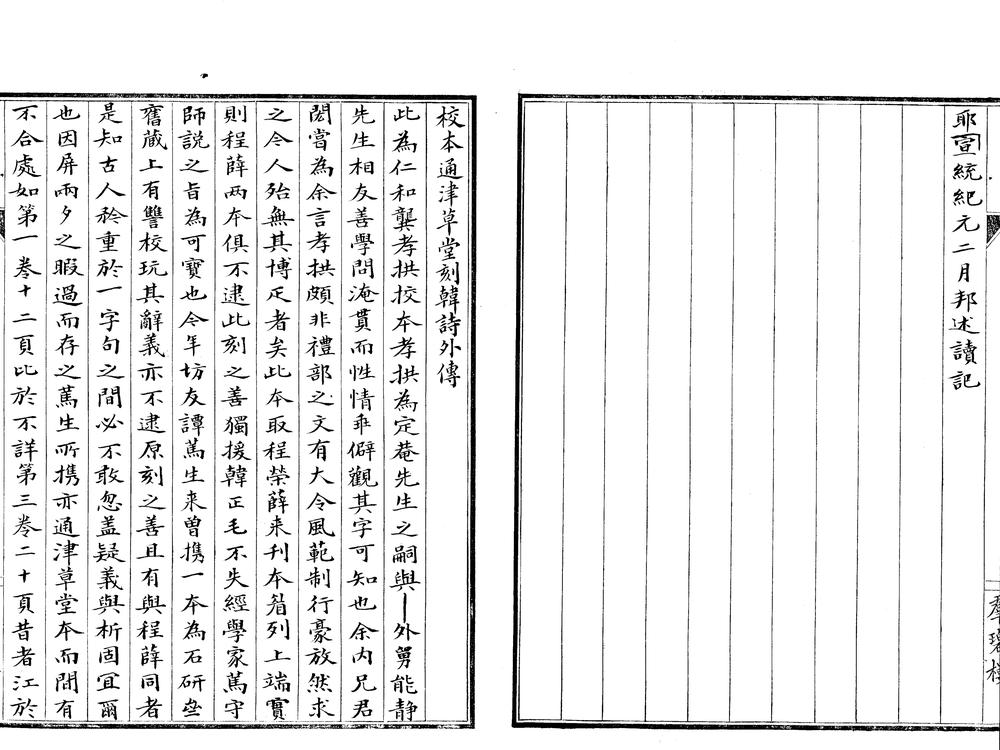 耶宣統紀元二月邦述讀記
羣碧樓
校本通津草堂刻韓詩外傳
此為仁和龔孝拱校本孝拱為定菴先生之嗣與外舅能静
先生相友善學問淹貫而性情乖僻觀其字可知也余内兄君
閎嘗為余言孝拱頗非禮部之文有大令風範制行豪放然求
之今人殆無其博疋者矣此本取程榮薛来刊本㫺列上端實
則程薛两本俱不逮此刻之善獨援韓正毛不失經學家篤守
師說之旨為可寳也今年坊友譚篤生来曾携一本為石研齋
舊藏上有讐校玩其辭義亦不逮原刻之善且有與程薛同者
是知古人矜重於一字句之間必不敢忽盖疑義與析固宜爾
也因屏兩夕之暇過而存之篤生所携亦通津草堂本而間有
不合處如第一巻十二頁比於不詳第三巻二十頁昔者江於